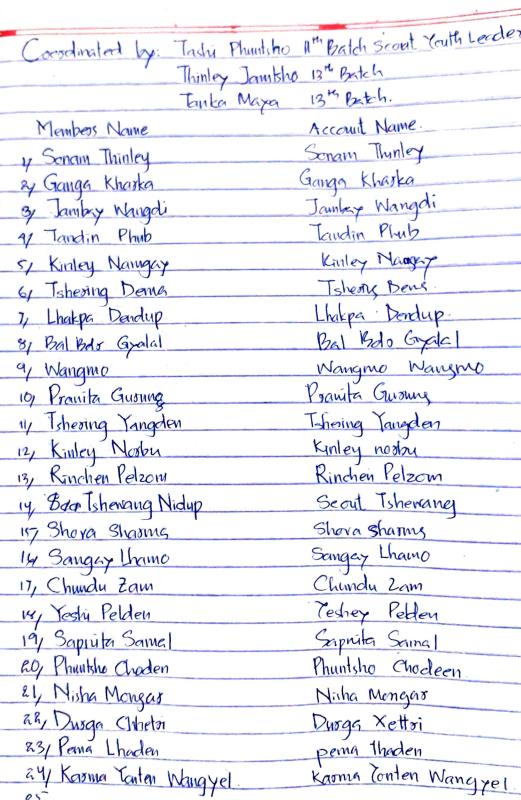 Coordinated by: Tashi Phuntsho 11th Batch Scout Youth Leader
Thinley Jamtsho 13th Batch
Tanka Maya 13th Batch.
Members Name Account Name.
1/ Sonam Thinley Sonam Thinley
2/ Ganga Kharka Ganga Kharka
3/ Jambay Wangdi Jambay Wangdi
4/ Tandin Phub Tandin Phub
5/ Kinley Namgay Kinley Namgay
6/ Tshering Dema Tshering Dema
7/ Lhakpa Dendup Lhakpa Dendup.
8/ Bal Bdo Gyalal Bal Bdo Gyalal
9/ Wangmo Wangmo Wangmo
10/ Pranita Gurung Pranita Gurung
11/ Tshering Yangden Tshering Yangden
12/ Kinley Norbu Kinley norbu
13/ Rinchen Pelzom Rinchen Pelzom
14/ Tshewang Nidup Scout Tshewang
15/ Shova Sharma Shova Sharma
16/ Sangay Lhamo Sangay Lhamo
17/ Chundu Zam Chundu Zam
18/ Yeshi Pelden Yeshey Pelden
19/ Sapnita Samal Sapnita Samal
20/ Phuntsho Choden Phuntsho Chodeen
21/ Nisha Mongar Nisha Mongar
22/ Durga Chhetri Durga Xettri
23/ Pema Lhaden pema lhaden
24/ Karma Yonten Wangyel Karma Yonten Wangyel
25